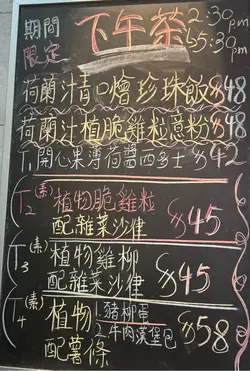 期間限定
下午茶
2:30pm
↳5:30pm
荷蘭汁青口燴珍珠飯 $48
荷蘭汁植脆雞粒意粉 $48
T1 開心果薄荷醬西多士 $42
T2 (素) 植物脆雞粒
配雜菜沙律 $45
T3 (素) 植物雞柳
配雜菜沙律 $45
T4 (素) 植物 1. 豬柳蛋
2. 牛肉漢堡包 $58
配薯條